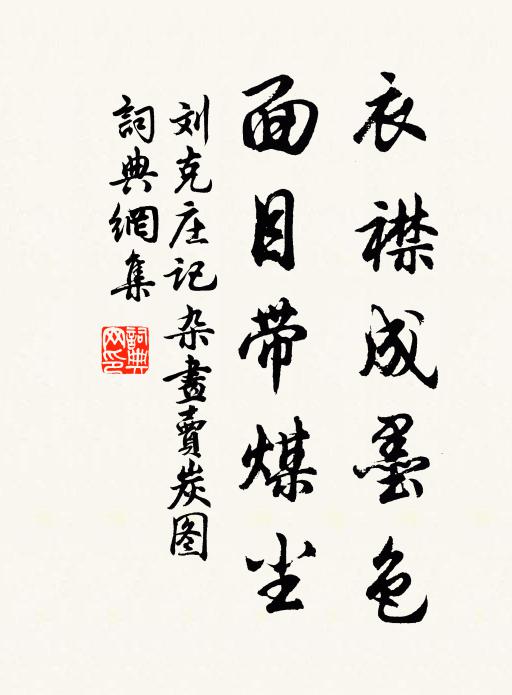 衣襟成墨色
面目带煤尘
刘克庄记杂畫賣炭图
詞典網集
詞典
网印